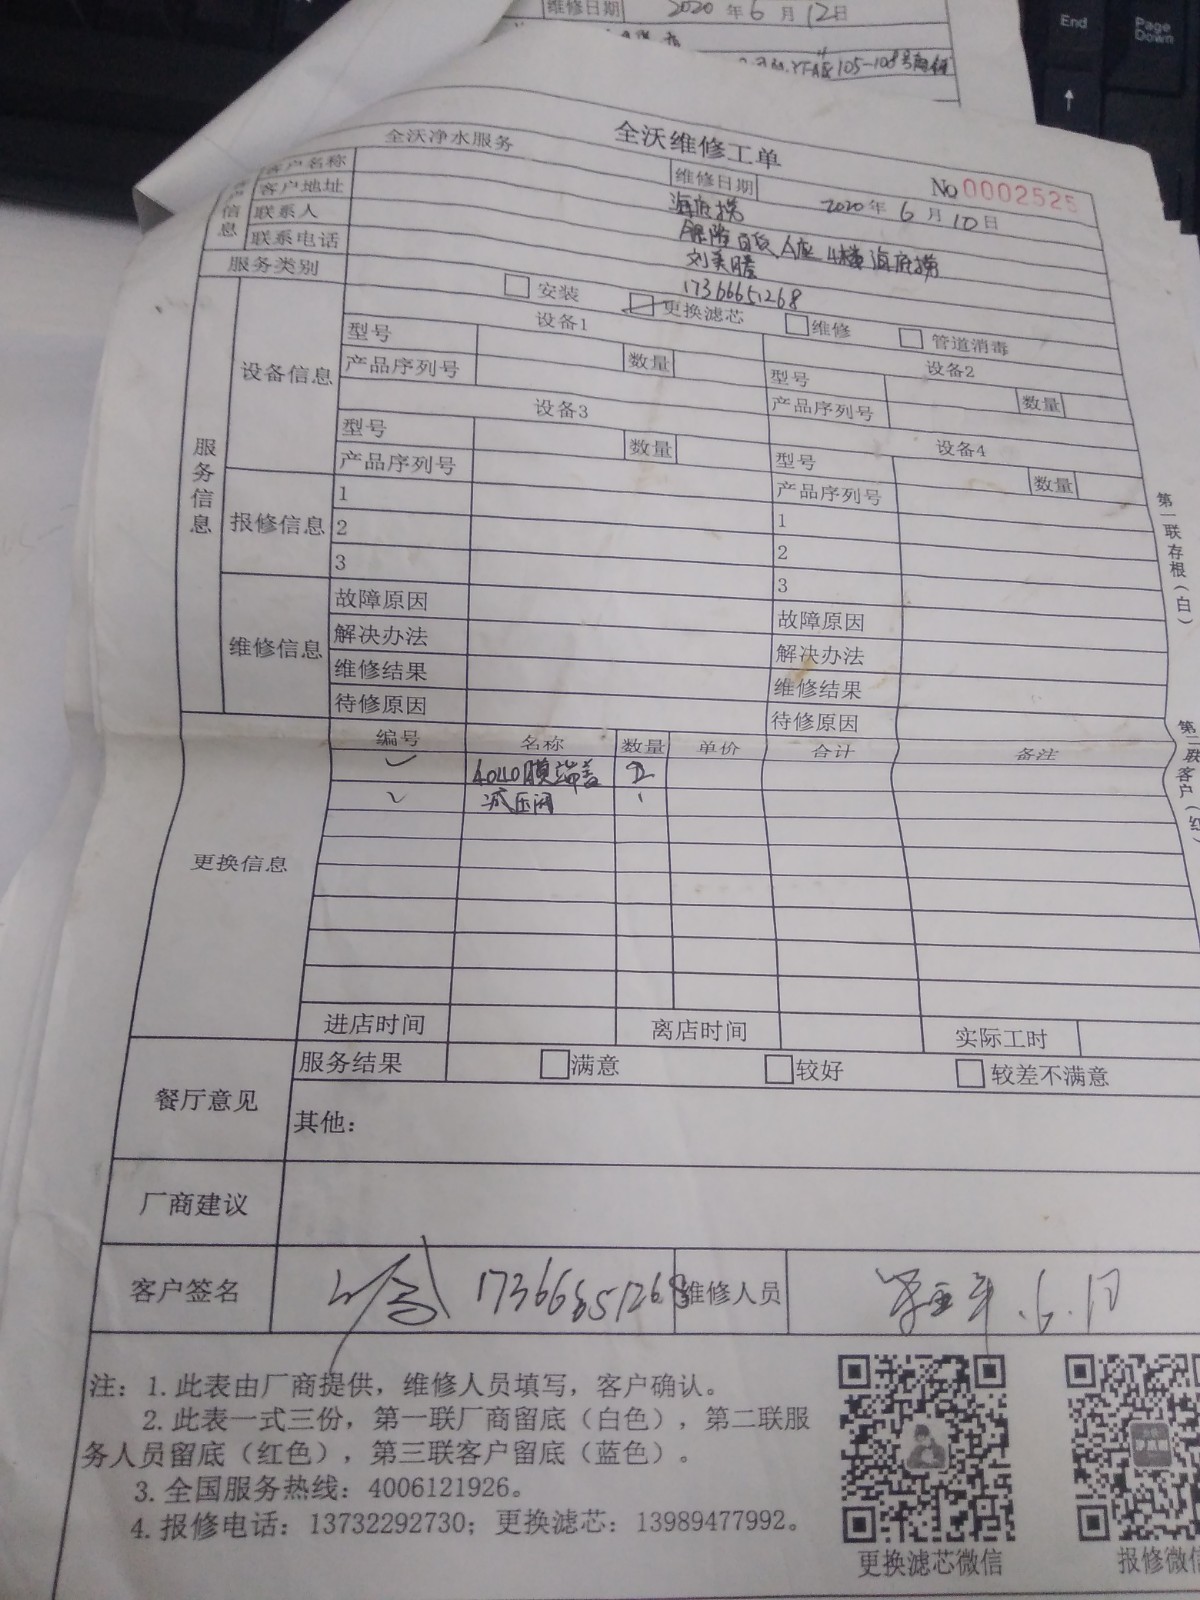 维修日期 2020年6月12日
105-108号商铺
End
Page Down
全沃净水服务 全沃维修工单
No 0002525
客户名称 海底捞 维修日期 2020年6月10日
客户地址 百货A座4楼海底捞
信息
联系人 刘美
联系电话 17366651268
服务类别 安装 更换滤芯 维修 管道消毒
服务信息
设备信息
设备1 设备2
型号 数量 型号 数量
产品序列号 产品序列号
设备3 设备4
型号 数量 型号 数量
产品序列号 产品序列号
报修信息
1 1
2 2
3 3
维修信息
故障原因 故障原因
解决办法 解决办法
维修结果 维修结果
待修原因 待修原因
第一联存根(白)
第二联客户(红)
更换信息
编号 名称 数量 单价 合计 备注
✓ 4040膜端盖 2
✓ 减压阀 1
进店时间 离店时间 实际工时
餐厅意见
服务结果 满意 较好 较差不满意
其他:
厂商建议
客户签名 17366651268 维修人员 6.10
注: 1. 此表由厂商提供, 维修人员填写, 客户确认。
2. 此表一式三份, 第一联厂商留底(白色), 第二联服
务人员留底(红色), 第三联客户留底(蓝色)。
3. 全国服务热线: 4006121926。
4. 报修电话: 13732292730; 更换滤芯: 13989477992。
更换滤芯微信 报修微信